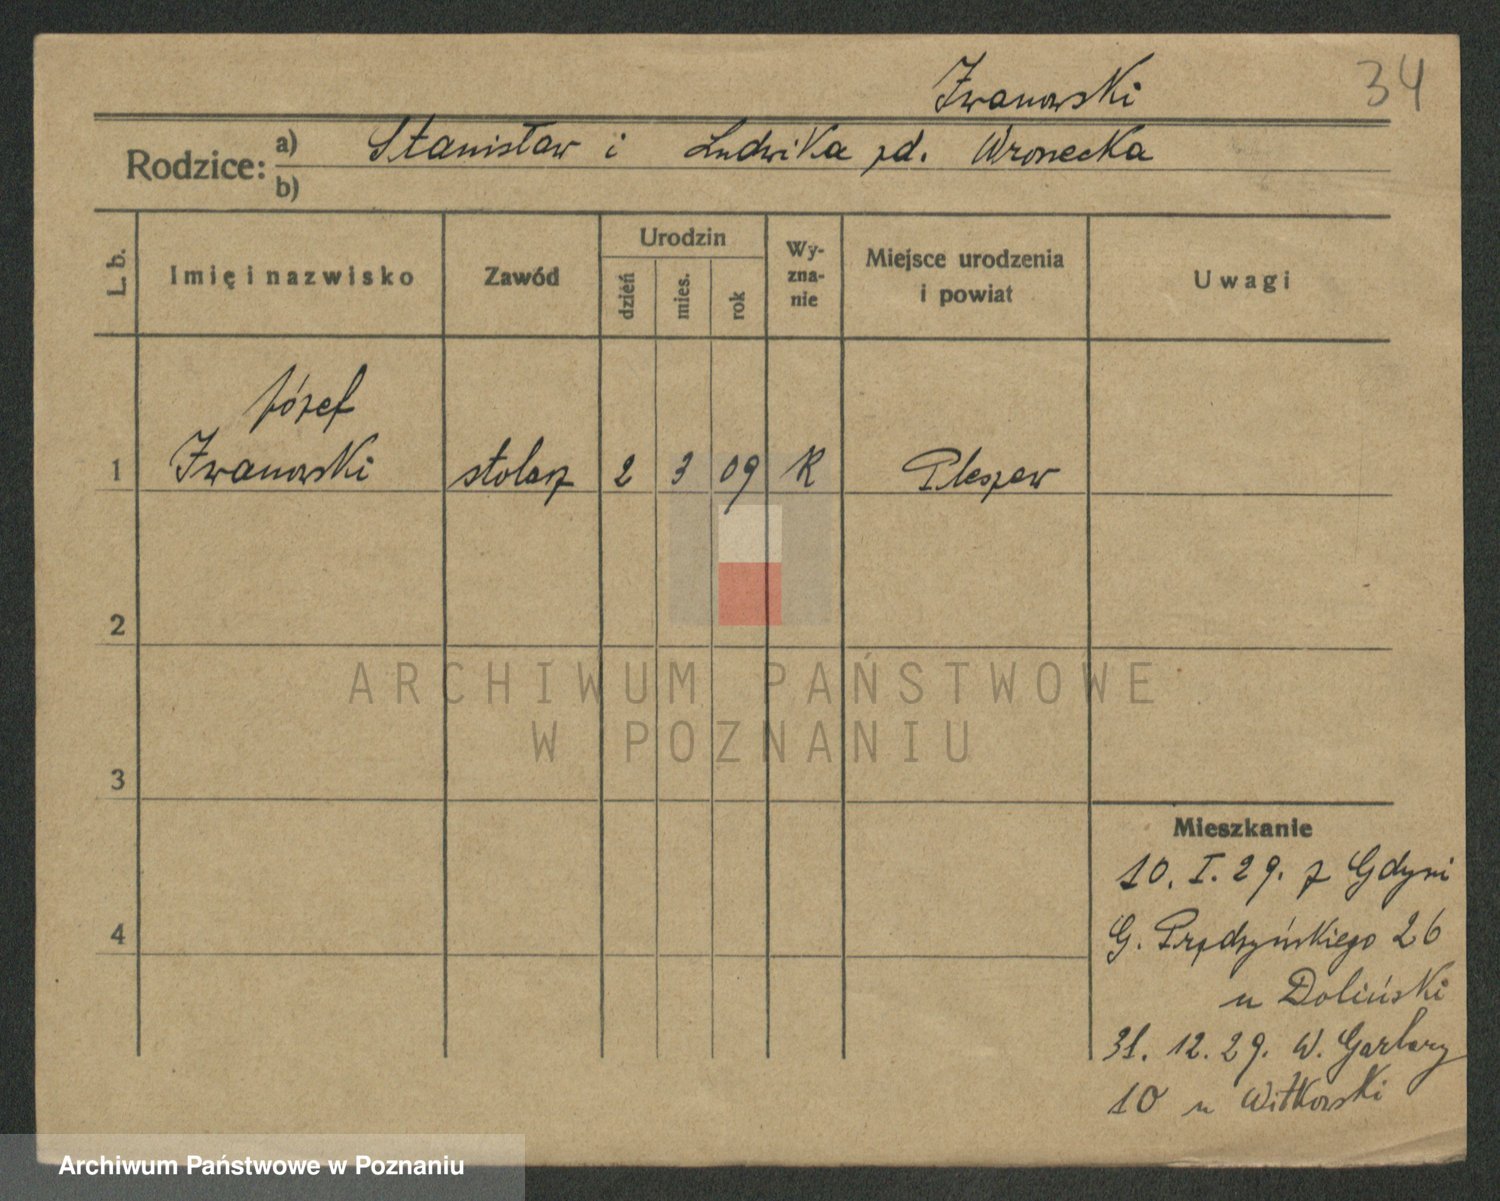 34
Iwanowski
Rodzice: a) Stanisław i Ludwika zd. Wronecka
b)
L. b.
Imię i nazwisko
Zawód
Urodzin
dzień
mies.
rok
Wy-
zna-
nie
Miejsce urodzenia
i powiat
Uwagi
Józef
1 Iwanowski stolarz 2 3 09 K Pleszew
2
3
4
ARCHIWUM PAŃSTWOWE
W POZNANIU
Mieszkanie
10. I. 29. z Gdyni
G. Prądzyńskiego 26
u Doliński
31. 12. 29. W. Garbary
10 u Witkowski
Archiwum Państwowe w Poznaniu